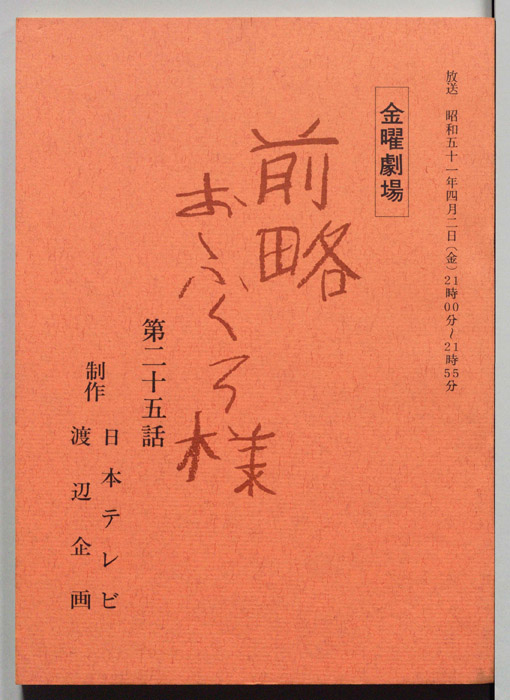 放送 昭和五十一年四月二日(金)21時00分〜21時55分
金曜劇場
前略
おふくろ様
第二十五話
制作 日本テレビ
渡辺企画